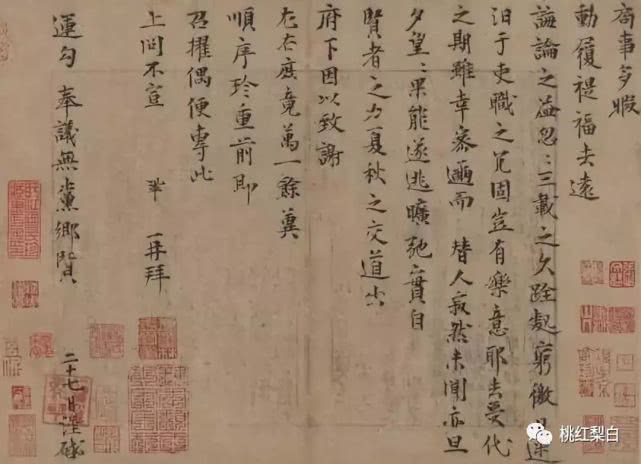 局事多暇
動履禔福去遠
誨論之益忽〻三載之久跧處窮徼日迷
汨于吏職之冗固豈有樂意耶去受代
之期雖幸密邇而 替人寂然未聞亦旦
夕望〻果能遂逃曠弛實自
賢者之力夏秋之交道出
府下因以致謝
左右庶竟萬一餘冀
順序珍重前即
召擢偶便專此
上問不宣 鞏 再拜
運勾 奉議無黨鄉賢 二十七日謹啟
桃红梨白